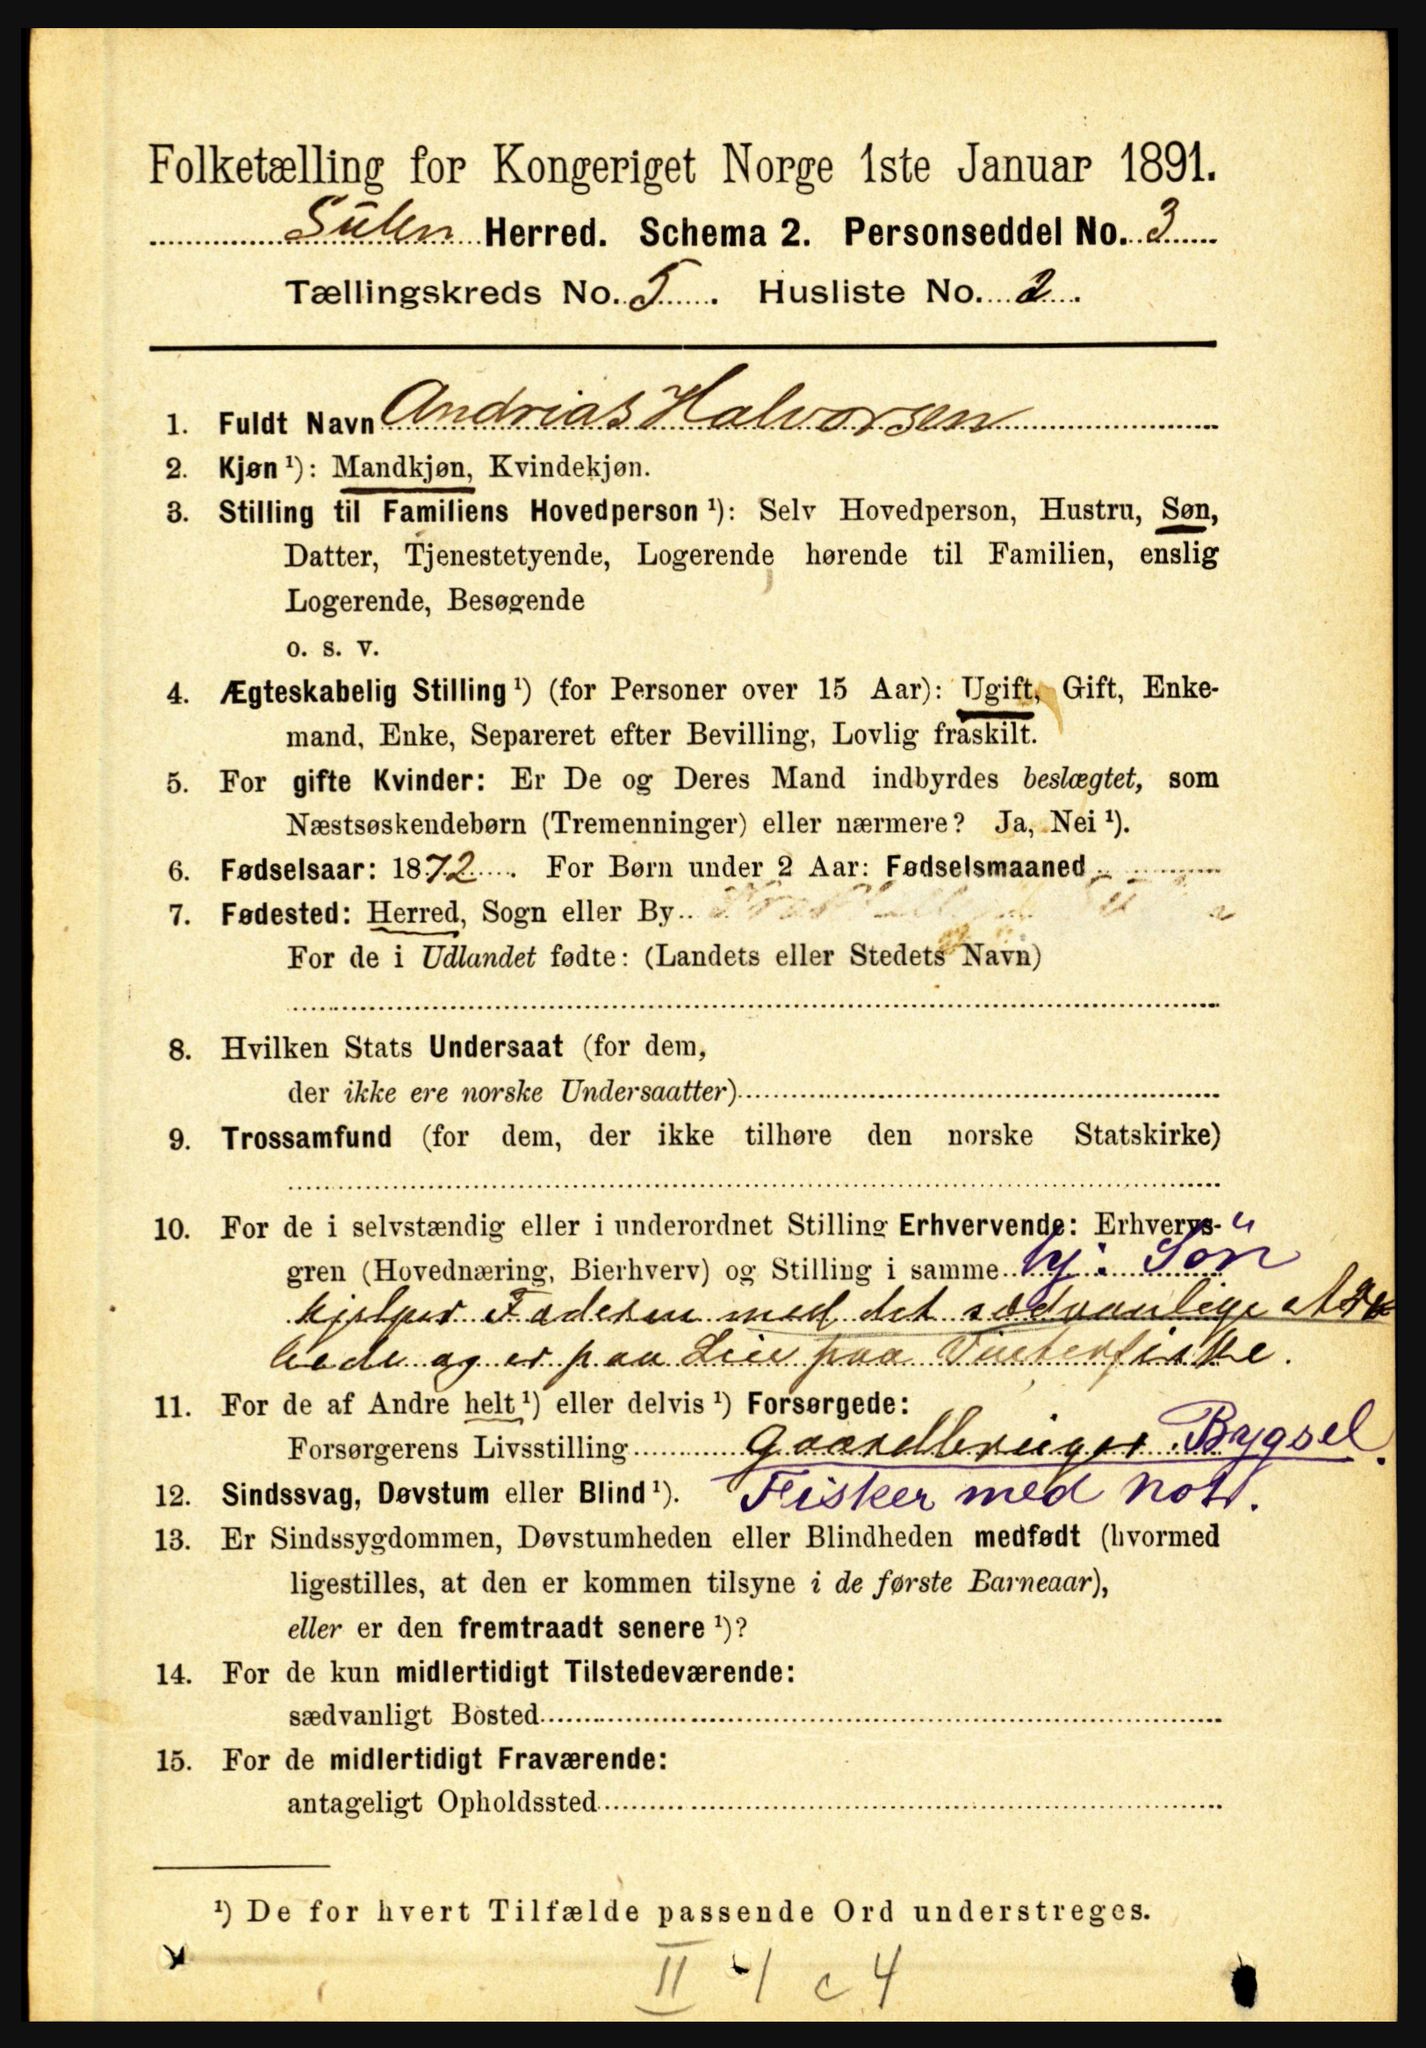 Folketælling for Kongeriget Norge 1ste Januar 1891.
Sulen Herred. Schema 2. Personseddel No. 3
Tællingskreds No. 5. Husliste No. 2.
1. Fuldt Navn Andrias Halvorsen
2. Kjøn ¹): Mandkjøn, Kvindekjøn.
3. Stilling til Familiens Hovedperson ¹): Selv Hovedperson, Hustru, Søn,
Datter, Tjenestetyende, Logerende hørende til Familien, enslig
Logerende, Besøgende
o. s. v.
4. Ægteskabelig Stilling ¹) (for Personer over 15 Aar): Ugift, Gift, Enke-
mand, Enke, Separeret efter Bevilling, Lovlig fraskilt.
5. For gifte Kvinder: Er De og Deres Mand indbyrdes beslægtet, som
Næstsøskendebørn (Tremenninger) eller nærmere? Ja, Nei ¹).
6. Fødselsaar: 1872. For Børn under 2 Aar: Fødselsmaaned
7. Fødested: Herred, Sogn eller By
For de i Udlandet fødte: (Landets eller Stedets Navn)
8. Hvilken Stats Undersaat (for dem,
der ikke ere norske Undersaatter)
9. Trossamfund (for dem, der ikke tilhøre den norske Statskirke)
10. For de i selvstændig eller i underordnet Stilling Erhvervende: Erhvervs-
gren (Hovednæring, Bierhverv) og Stilling i samme Søn
hjelper Faderen med det sædvanlige Ar
beide og er paa Leie paa Vinterfiske.
11. For de af Andre helt ¹) eller delvis ¹) Forsørgede:
Forsørgerens Livsstilling Gaardbruger Bygsel.
12. Sindssvag, Døvstum eller Blind ¹). Fisker med Not.
13. Er Sindssygdommen, Døvstumheden eller Blindheden medfødt (hvormed
ligestilles, at den er kommen tilsyne i de første Barneaar),
eller er den fremtraadt senere ¹)?
14. For de kun midlertidigt Tilstedeværende:
sædvanligt Bosted
15. For de midlertidigt Fraværende:
antageligt Opholdssted
¹) De for hvert Tilfælde passende Ord understreges.
II 1 c 4